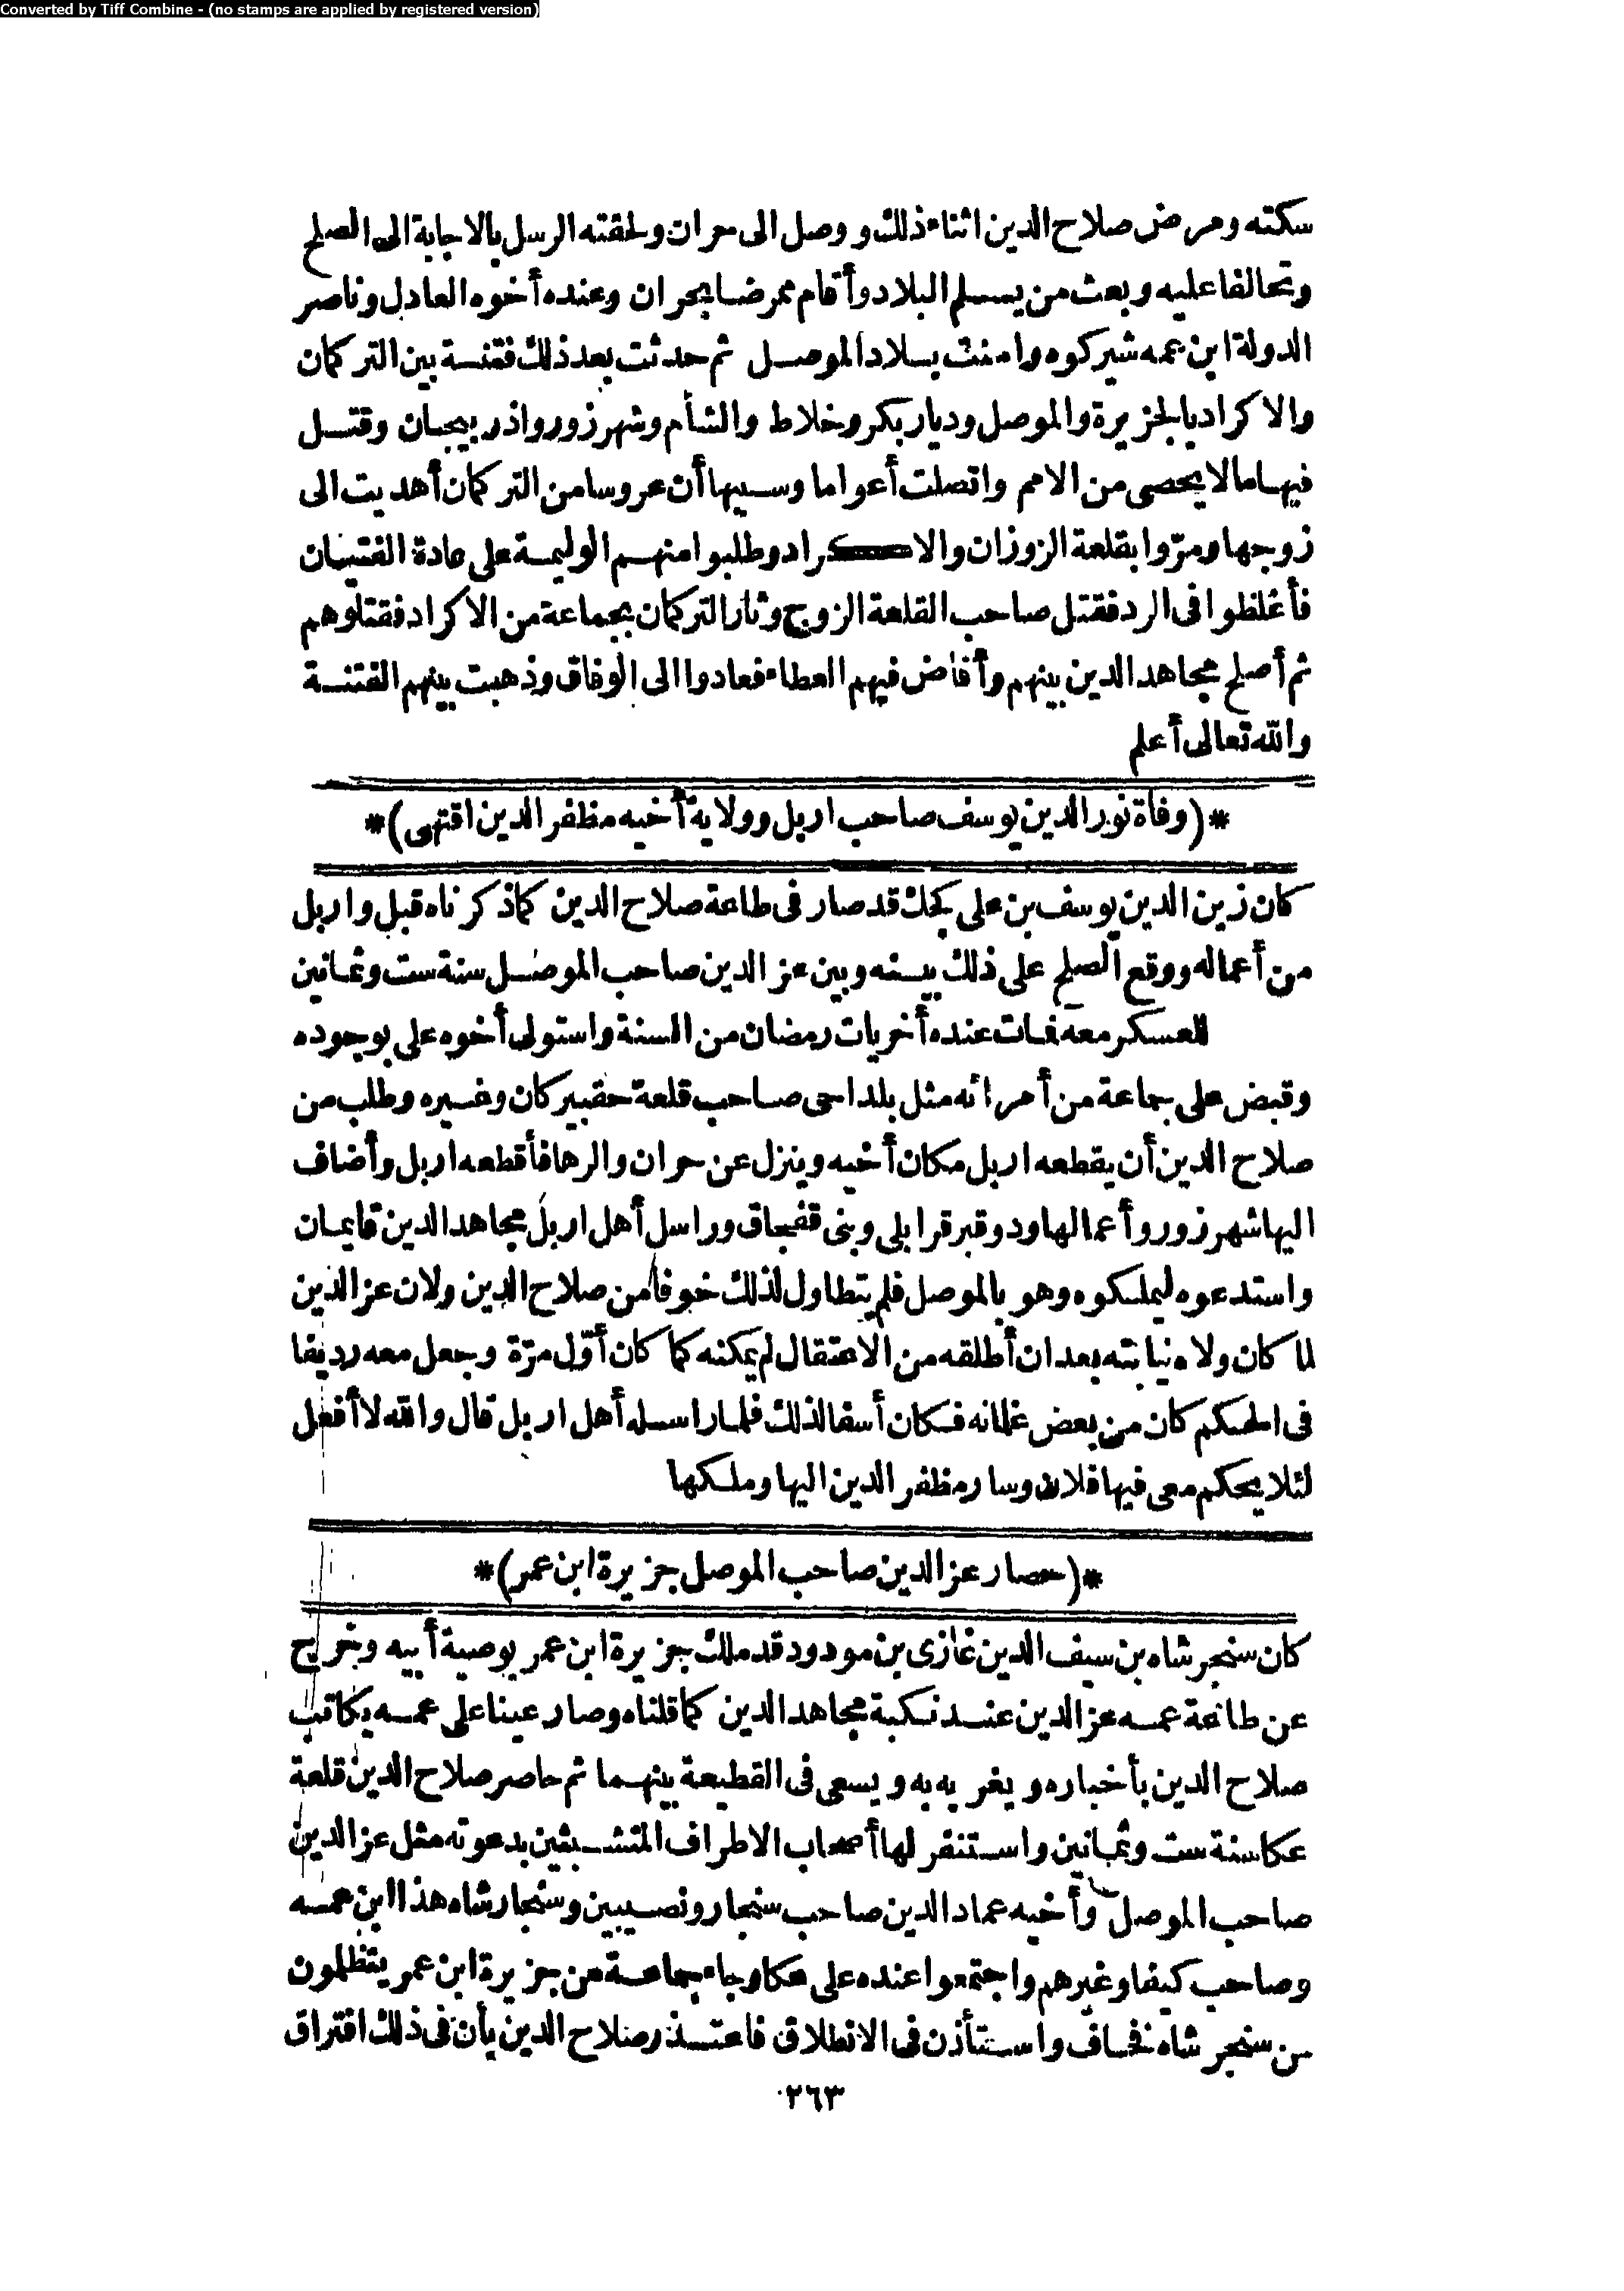 Converted by Tiff Combine - (no stamps are applied by registered version)
سكته ومرض صلاح الدين اثناء ذلك ووصل الى حران ولحقته الرسل بالاجابة الى الصلح
وتحالفا عليه وبعث من يسلم البلاد وأقام ممرضا بحران وعنده أخوه العادل وناصر
الدولة ابن عمه شيركوه وامنت بلاد الموصل ثم حدثت بعد ذلك فتنة بين التركمان
والاكراد بالجزيرة والموصل وديار بكر وخلاط والشأم وشهرزور واذربيجان وقتل
فيها ما لا يحصى من الامم واتصلت أعواما وسببها أن عروسا من التركمان أهديت الى
زوجها ومرّوا بقلعة الزوزان والاكراد وطلبوا منهم الوليمة على عادة الفتيان
فأغلظوا فى الرد فقتل صاحب القلعة الزوج وثار التركمان بجماعة من الاكراد فقتلوهم
ثم أصلح مجاهد الدين بينهم وأفاض فيهم العطاء فعادوا الى الوفاق وذهبت بينهم الفتنة
والله تعالى أعلم
*(وفاة نور الدين يوسف صاحب اربل وولاية أخيه مظفر الدين اقتهى)*
كان زين الدين يوسف بن على كجك قد صار فى طاعة صلاح الدين كما ذكرناه قبل واربل
من أعماله ووقع الصلح على ذلك بينه وبين عز الدين صاحب الموصل سنة ست وثمانين
للعسكر معه فمات عنده أخريات رمضان من السنة واستولى أخوه على بوجوده
وقبض على جماعة من أمرائه مثل بلداجى صاحب قلعة حقبيركان وغيره وطلب من
صلاح الدين أن يقطعه اربل مكان أخيه وينزل عن حران والرها فأقطعه اربل وأضاف
اليها شهرزور وأعمالها ودوقبر قرابلى وبنى قفجاق وراسل أهل اربل مجاهد الدين قايمان
واستدعوه ليملكوه وهو بالموصل فلم يتطاول لذلك خوفا من صلاح الدين ولان عز الدين
لما كان ولاه نيابته بعد ان أطلقه من الاعتقال لم يمكنه كما كان أوّل مرّة وجعل معه رديفا
فى الحكم كان من بعض غلمانه فكان أسفا لذلك فلما راسله أهل اربل قال والله لا أفعل
لئلا يحكم معى فيها فلان وسار مظفر الدين اليها وملكها
*(حصار عز الدين صاحب الموصل جزيرة ابن عمر)*
كان سنجر شاه بن سيف الدين غازى بن مودود قد ملك جزيرة ابن عمر بوصية أبيه وخرج
عن طاعة عمه عز الدين عند نكبة مجاهد الدين كما قلناه وصار عينا على عمه يكاتب
صلاح الدين بأخباره ويغريه به ويسعى فى القطيعة بينهما ثم حاصر صلاح الدين قلعة
عكا سنة ست وثمانين واستنفر لها أصحاب الاطراف المتشبثين بدعوته مثل عز الدين
صاحب الموصل وأخيه عماد الدين صاحب سنجار ونصيبين وسنجار شاه هذا ابن عمه
وصاحب كيفا وغيرهم واجتمعوا عنده على عكا وجاء جماعة من جزيرة ابن عمر يتظلمون
من سنجر شاه فخاف واستأذن فى الانطلاق فاعتذر صلاح الدين بأن فى ذلك افتراق
٢٦٣